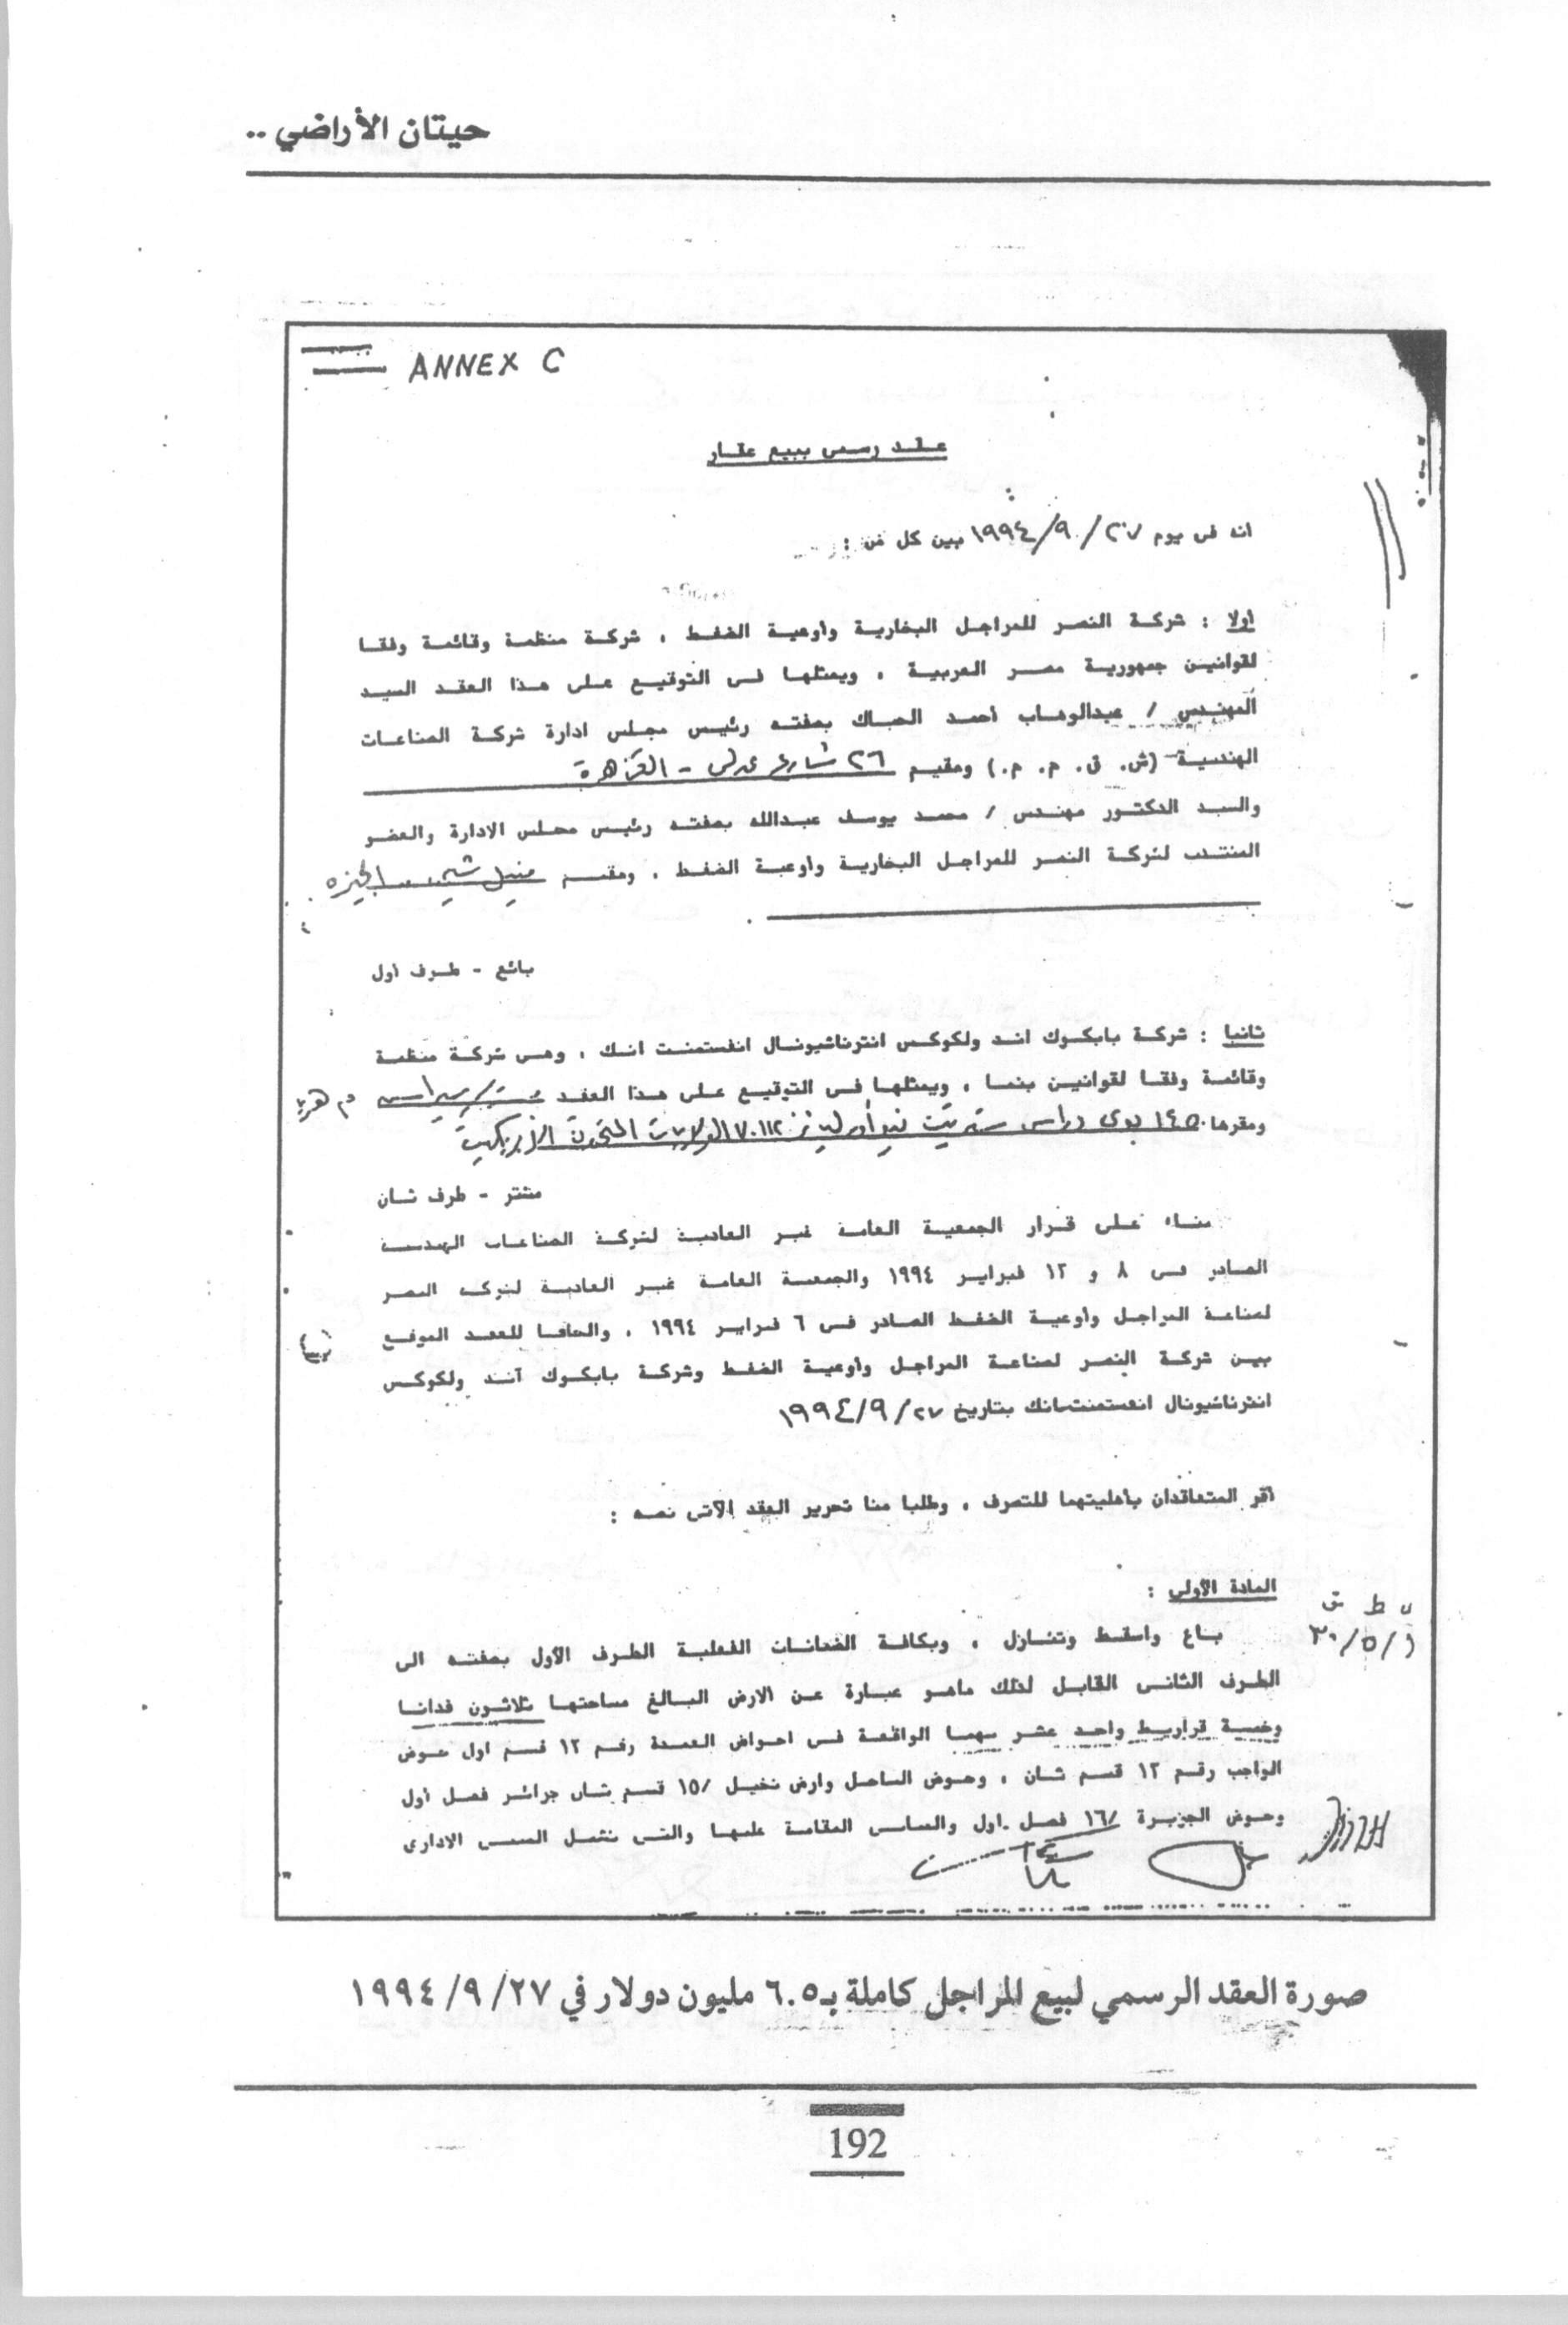 حيتان الأراضي ..
ANNEX C
عقد رسمى ببيع عقار
انه فى يوم ٢٧/٩/١٩٩٤ بين كل من :
أولا : شركة النصر للمراجل البخارية وأوعية الضغط ، شركة منظمة وقائمة وفقا
لقوانين جمهورية مصر العربية ، ويمثلها فى التوقيع على هذا العقد السيد
المهندس / عبدالوهاب أحمد الحباك بصفته رئيس مجلس ادارة شركة الصناعات
الهندسية (ش. ق. م. م.) ومقيم ٢٦ شارع عدلى - القاهرة
والسيد الدكتور مهندس / محمد يوسف عبدالله بصفته رئيس مجلس الادارة والعضو
المنتدب لشركة النصر للمراجل البخارية وأوعية الضغط ، ومقيم منيل شيحه الجيزه
بائع - طرف أول
ثانيا : شركة بابكوك اند ولكوكس انترناشيونال انفستمنت انك ، وهى شركة منظمة
وقائمة وفقا لقوانين بنما ، ويمثلها فى التوقيع على هذا العقد
ومقرها ١٤٥٠ بوى دراس ستريت نيو أورليانز ٧٠١١٢ الولايات المتحدة الأمريكية
مشتر - طرف ثان
بناء على قرار الجمعية العامة غير العادية لشركة الصناعات الهندسية
الصادر فى ٨ و ١٢ فبراير ١٩٩٤ والجمعية العامة غير العادية لشركة النصر
لصناعة المراجل وأوعية الضغط الصادر فى ٦ فبراير ١٩٩٤ ، والحاقا للعقد الموقع
بين شركة النصر لصناعة المراجل وأوعية الضغط وشركة بابكوك آند ولكوكس
انترناشيونال انفستمنت انك بتاريخ ٢٧/٩/١٩٩٤
أقر المتعاقدان بأهليتهما للتصرف ، وطلبا منا تحرير العقد الآتى نصه :
المادة الأولى :
باع واسقط وتنازل ، وبكافة الضمانات الفعلية الطرف الأول بصفته الى
الطرف الثانى القابل لذلك ماهو عبارة عن الارض البالغ مساحتها ثلاثون فدانا
وخمسة قراريط واحد عشر سهما الواقعة فى احواض العمدة رقم ١٢ قسم اول حوض
الواجب رقم ١٢ قسم ثان ، وحوض الساحل وارض نخيل /١٥ قسم ثان جزائر فصل أول
وحوض الجزيرة /١٦ فصل اول والمبانى المقامة عليها والتى تشمل المبنى الادارى
صورة العقد الرسمي لبيع المراجل كاملة بـ ٦.٥ مليون دولار في ٢٧/ ٩/ ١٩٩٤
192